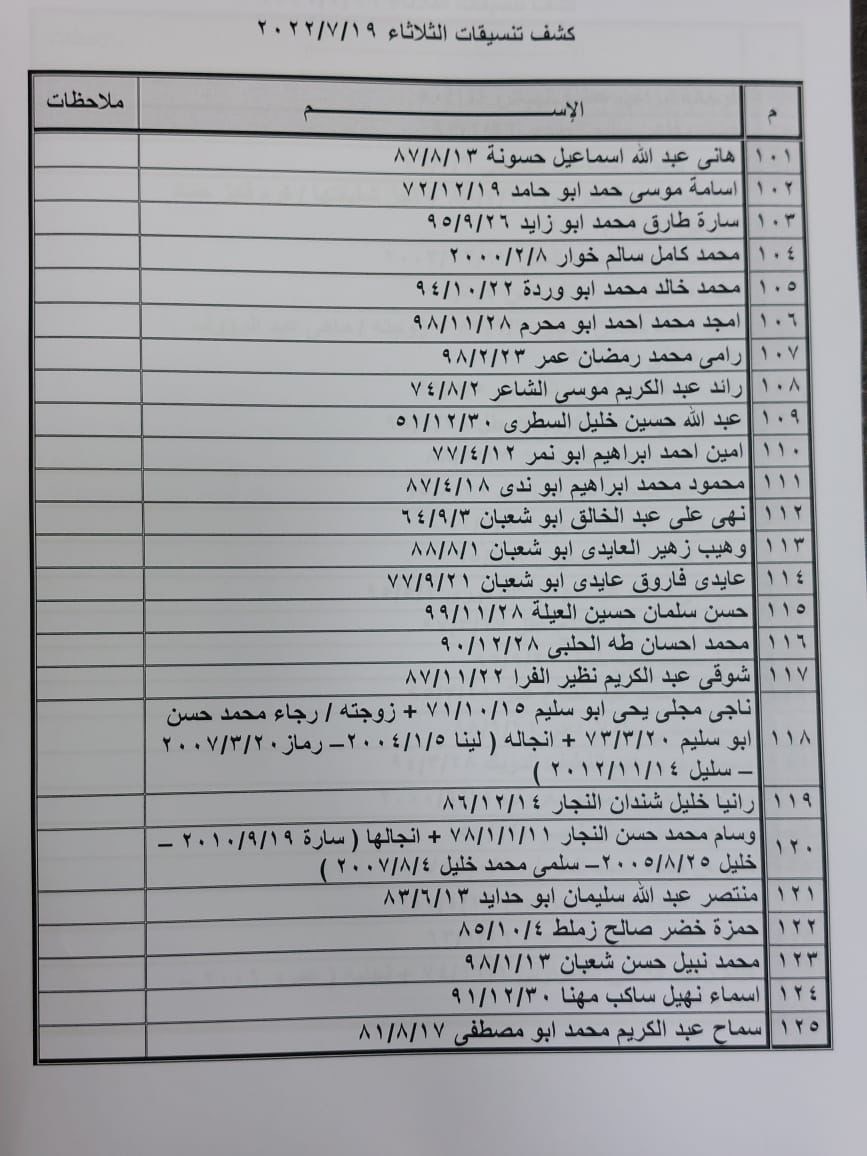 كشف تنسيقات الثلاثاء ٢٠٢٢/٧/١٩
م الإســـــــــــــــم ملاحظات
١٠١ هانى عبد الله اسماعيل حسونة ٨٧/٨/١٣
١٠٢ اسامة موسى حمد ابو حامد ٧٢/١٢/١٩
١٠٣ سارة طارق محمد ابو زايد ٩٥/٩/٢٦
١٠٤ محمد كامل سالم خوار ٢٠٠٠/٢/٨
١٠٥ محمد خالد محمد ابو وردة ٩٤/١٠/٢٢
١٠٦ امجد محمد احمد ابو محرم ٩٨/١١/٢٨
١٠٧ رامى محمد رمضان عمر ٩٨/٢/٢٣
١٠٨ رائد عبد الكريم موسى الشاعر ٧٤/٨/٢
١٠٩ عبد الله حسين خليل السطرى ٥١/١٢/٣٠
١١٠ امين احمد ابراهيم ابو نمر ٧٧/٤/١٢
١١١ محمود محمد ابراهيم ابو ندى ٨٧/٤/١٨
١١٢ نهى على عبد الخالق ابو شعبان ٦٤/٩/٣
١١٣ وهيب زهير العايدى ابو شعبان ٨٨/٨/١
١١٤ عايدى فاروق عايدى ابو شعبان ٧٧/٩/٢١
١١٥ حسن سلمان حسين العيلة ٩٩/١١/٢٨
١١٦ محمد احسان طه الحلبى ٩٠/١٢/٢٨
١١٧ شوقى عبد الكريم نظير الفرا ٨٧/١١/٢٢
١١٨ ناجى مجلى يحى ابو سليم ٧١/١٠/١٥ + زوجته / رجاء محمد حسن
ابو سليم ٧٣/٣/٢٠ + انجاله ( لينا ٢٠٠٤/١/٥– رماز٢٠٠٧/٣/٢٠
– سليل ٢٠١٢/١١/١٤ )
١١٩ رانيا خليل شندان النجار ٨٦/١٢/١٤
١٢٠ وسام محمد حسن النجار ٧٨/١/١/١١ + انجالها ( سارة ٢٠١٠/٩/١٩ –
خليل ٢٠٠٥/٨/٢٥– سلمى محمد خليل ٢٠٠٧/٨/٤ )
١٢١ منتصر عبد الله سليمان ابو حدايد ٨٣/٦/١٣
١٢٢ حمزة خضر صالح زملط ٨٥/١٠/٤
١٢٣ محمد نبيل حسن شعبان ٩٨/١/١٣
١٢٤ اسماء نهيل ساكب مهنا ٩١/١٢/٣٠
١٢٥ سماح عبد الكريم محمد ابو مصطفى ٨١/٨/١٧